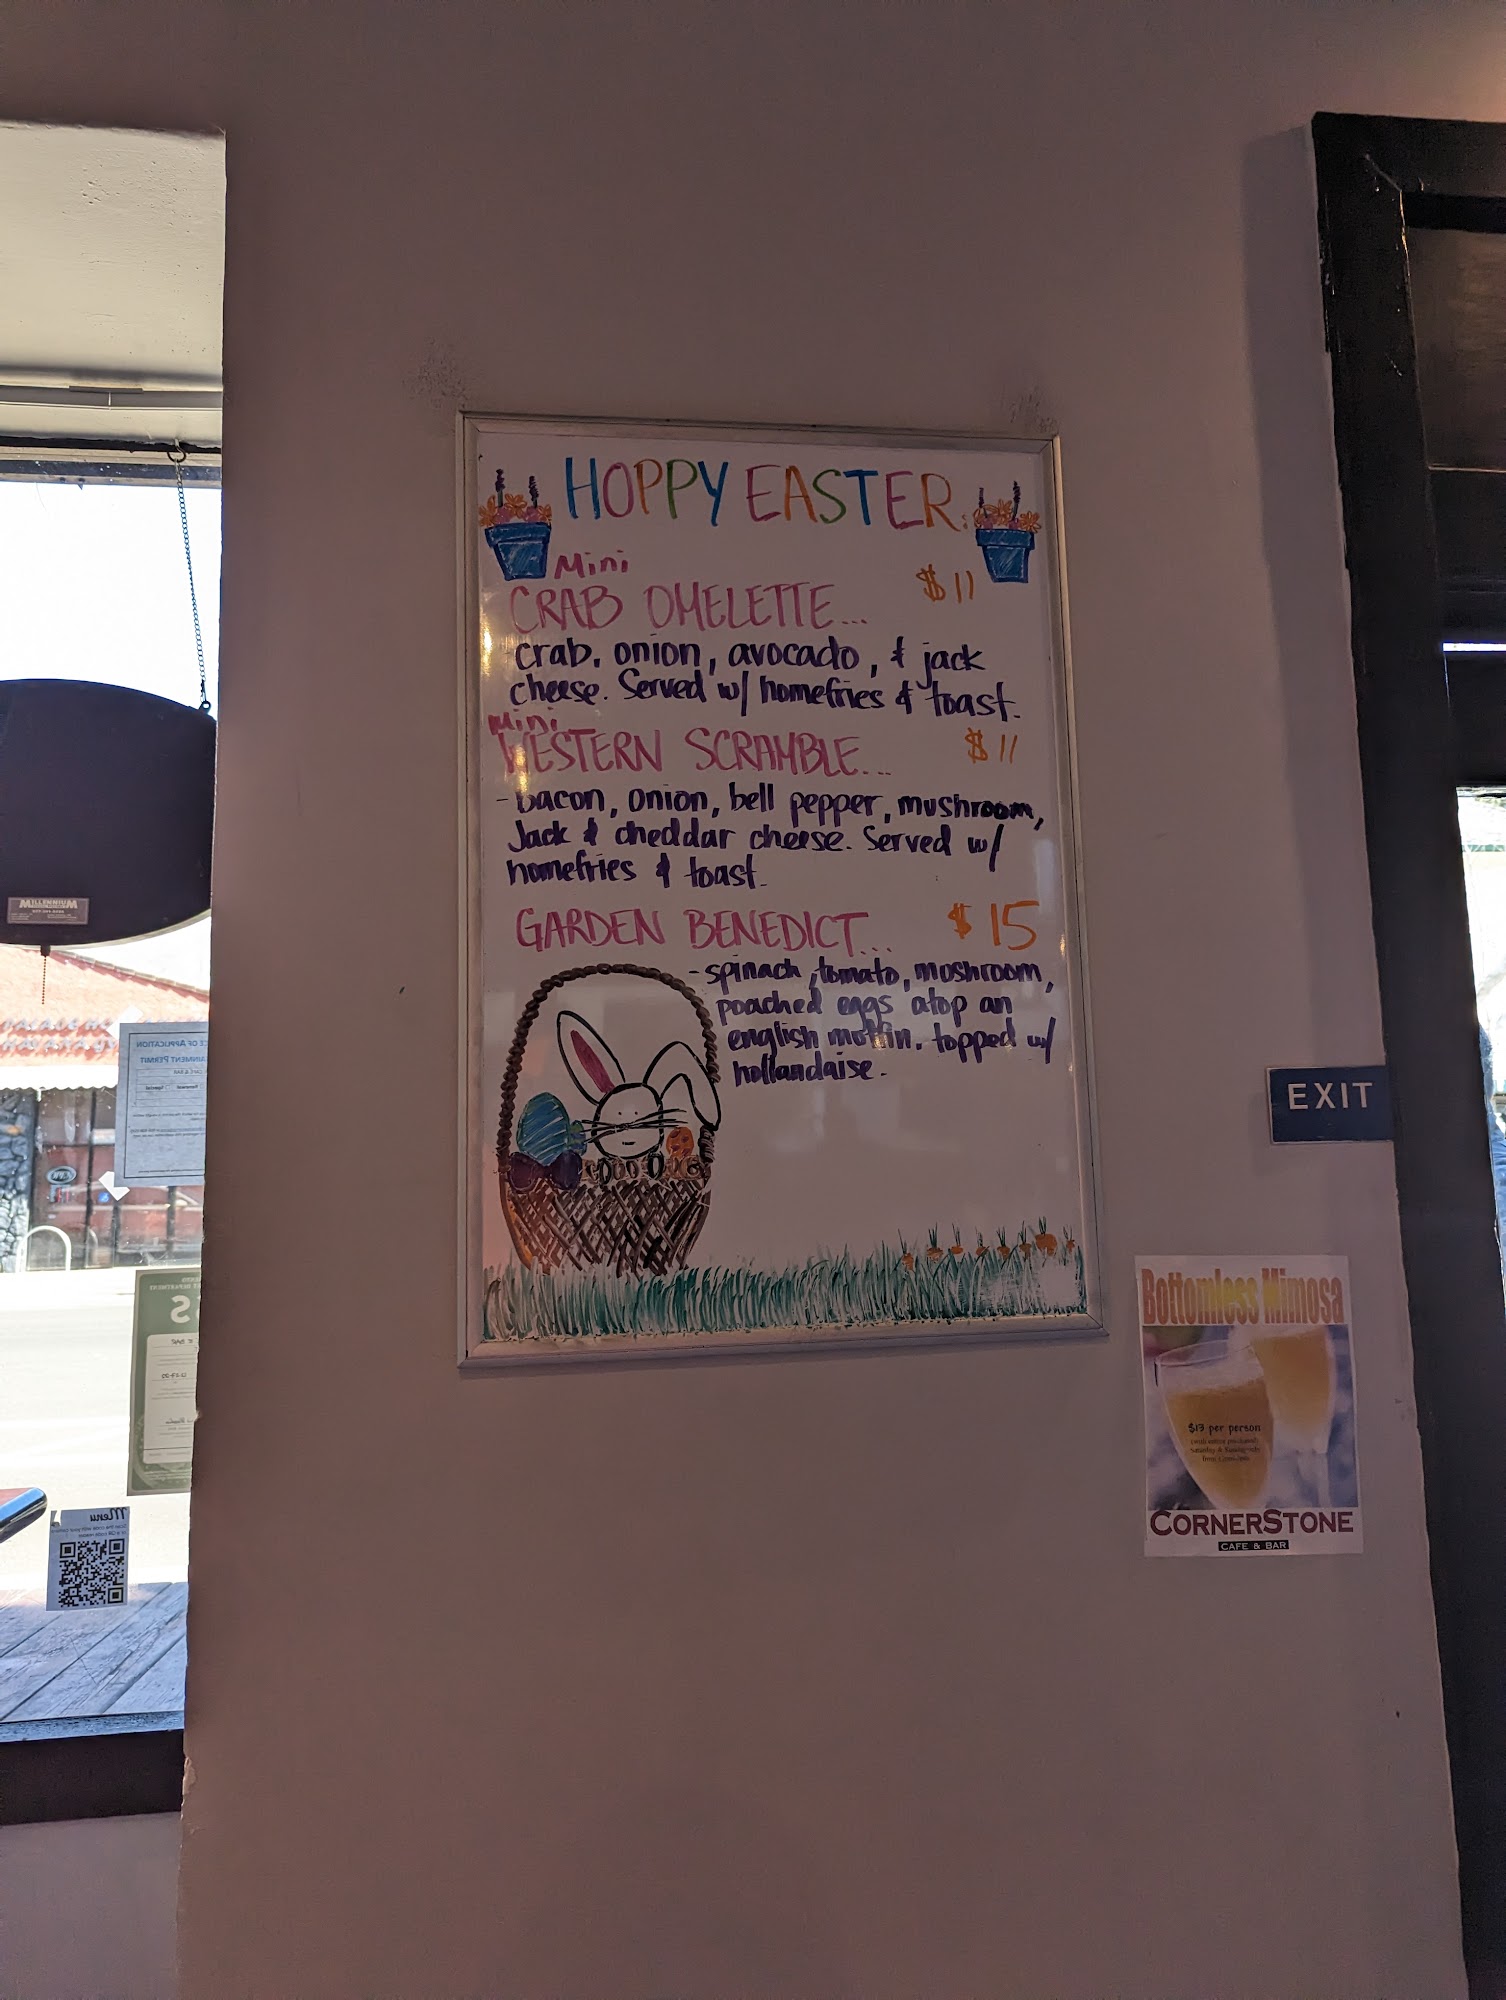 HOPPY EASTER:
Mini
CRAB OMELETTE... $11
crab, onion, avocado, & jack
cheese. Served w/ homefries & toast.
Mini
WESTERN SCRAMBLE... $11
- bacon, onion, bell pepper, mushroom,
Jack & cheddar cheese. Served w/
homefries & toast.
GARDEN BENEDICT... $15
- spinach, tomato, mushroom,
poached eggs atop an
english muffin. topped w/
hollandaise.
EXIT
Bottomless Mimosa
$13 per person
CORNERSTONE
CAFE & BAR
MILLENNIUM
Menu